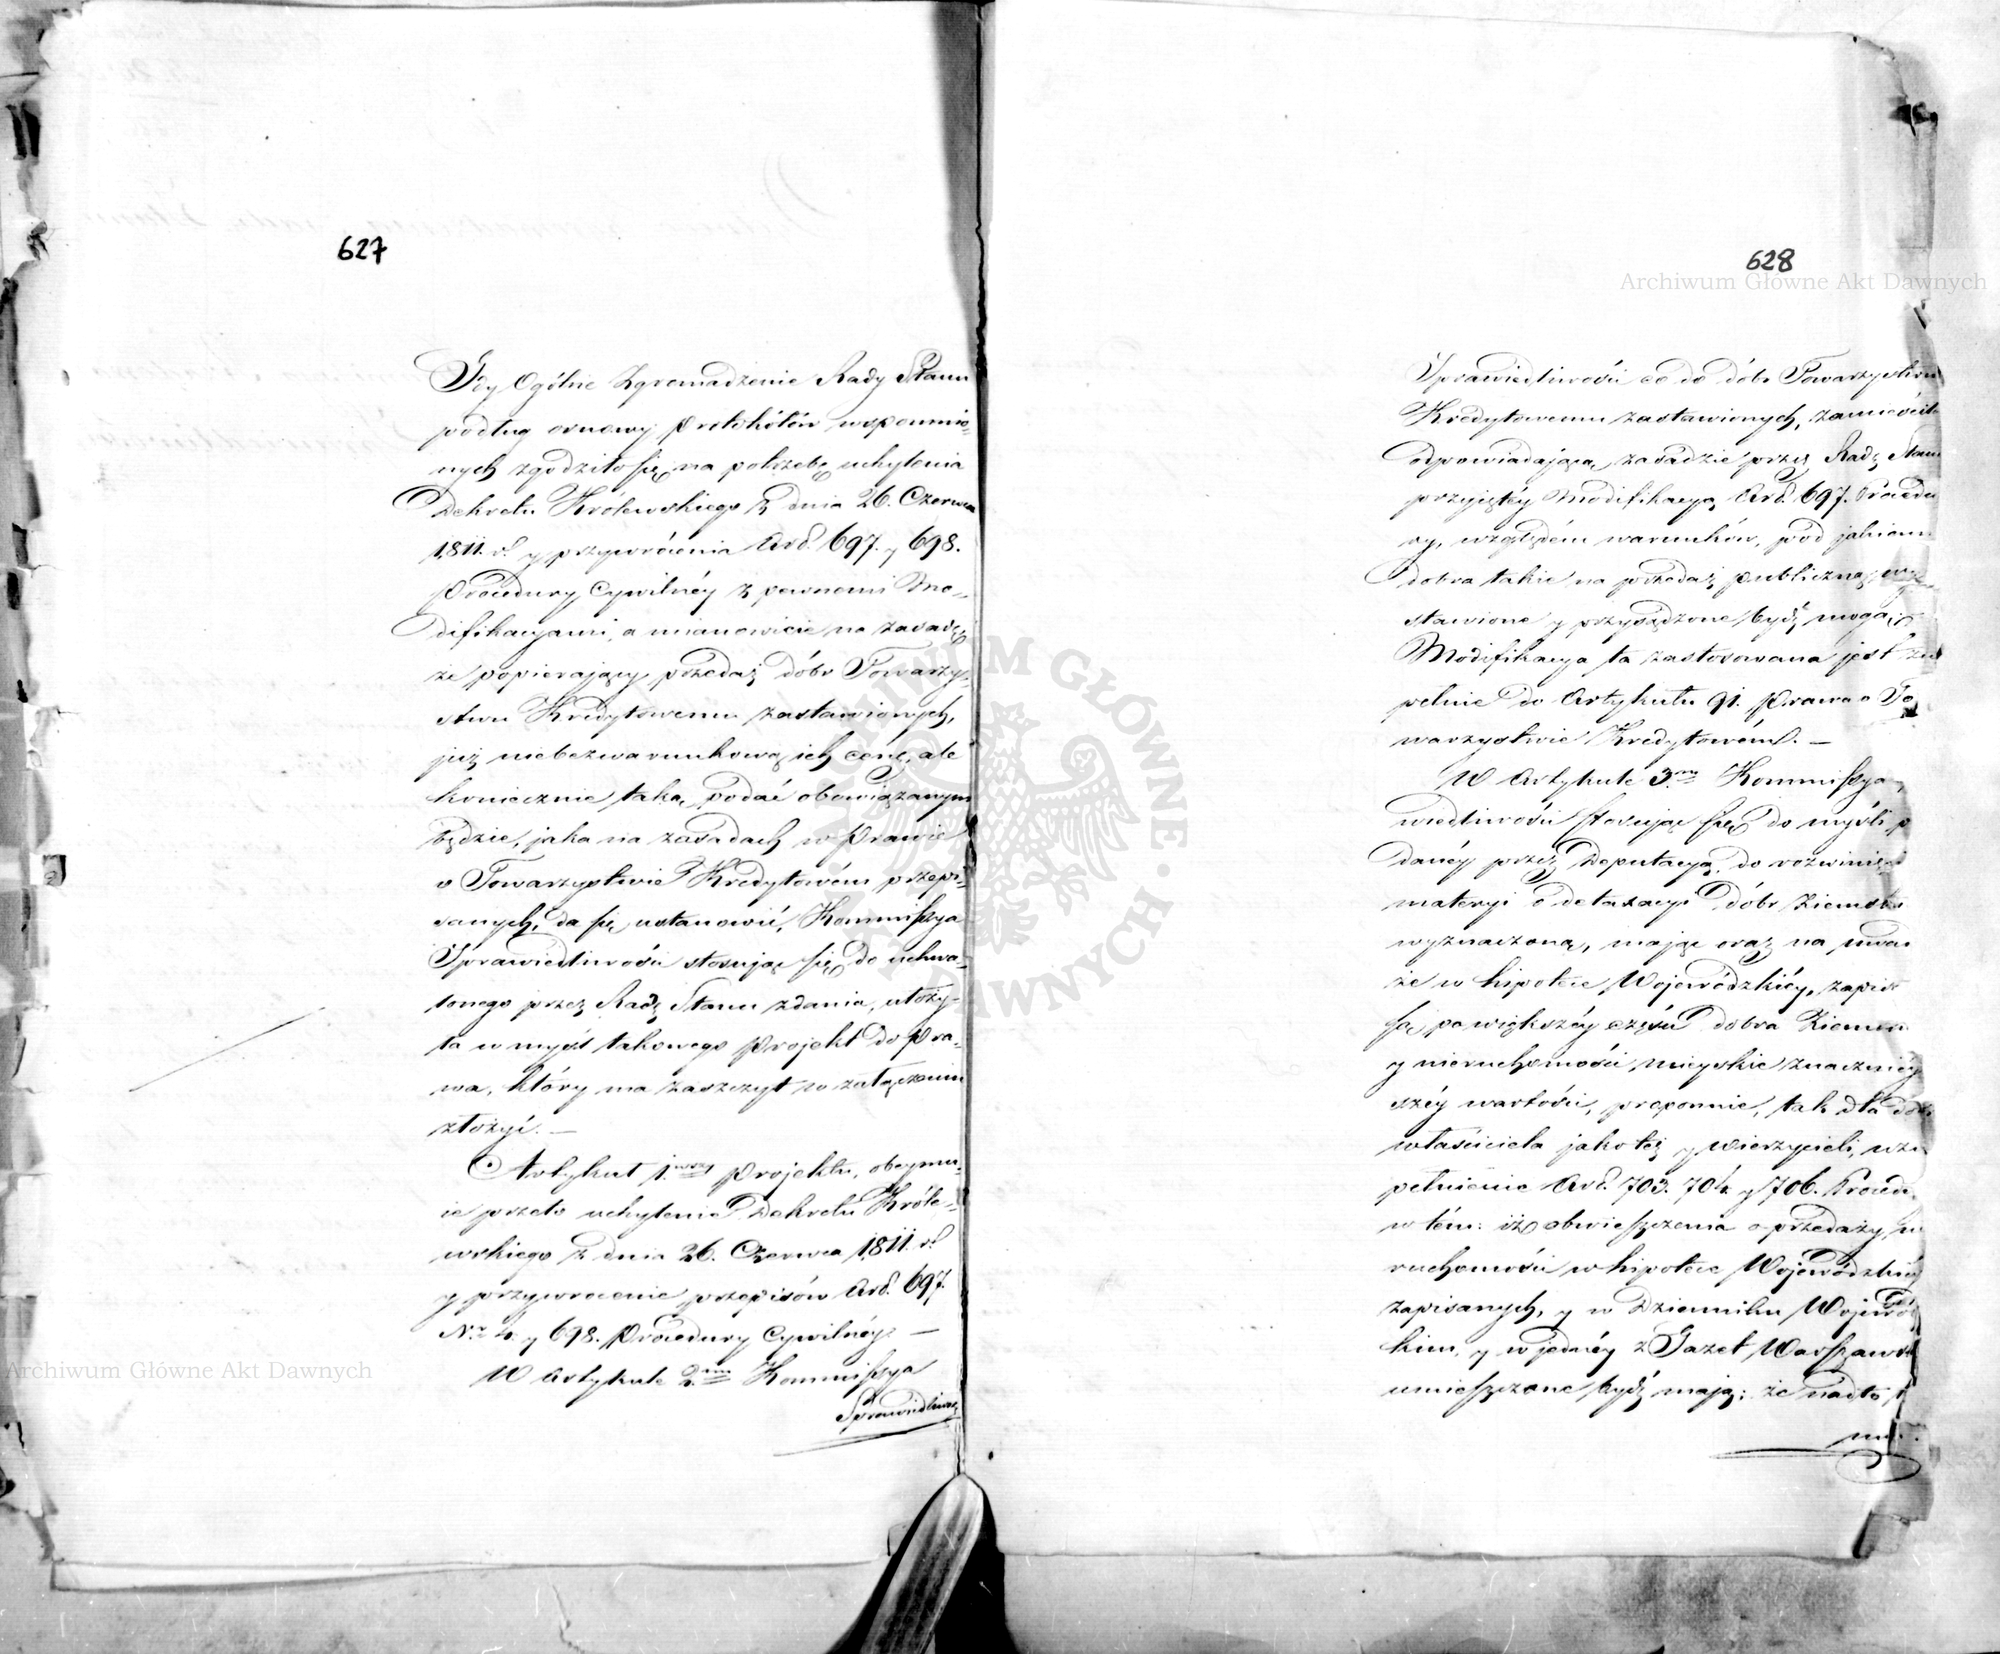 627
Gdy Ogólne Zgromadzenie Rady Stanu
podług osnowy protokółów wspomnio-
nych zgodziło się na potrzebę uchylenia
Dekretu Królewskiego z dnia 26. Czerwca
1811. r. y przywrócenia Art. 697. y 698.
Procedury Cywilnéy z pewnemi Mo-
difikacyami, a mianowicie na zasadzie
że popierający przedaż dóbr Towarzy-
stwu Kredytowemu zastawionych,
już niebezwarunkową ich cenę, ale
koniecznie taką podać obowiązanym
będzie, jaka na zasadach w Prawie
o Towarzystwie Kredytowém przepi-
sanych, da się ustanowić, Kommissya
Sprawiedliwości stosując się do uchwa-
lonego przez Radę Stanu zdania, ułoży-
ła w myśl takowego projekt do pra-
wa, który ma zaszczyt w załączeniu
złożyć. —
Artykuł 1.wszy projektu, obeymu-
ie przeto uchylenie Dekretu Króle-
wskiego z dnia 26. Czerwca 1811. r.
y przywrócenie przepisów Art. 697.
Nr. 4. y 698. Procedury Cywilnéy. —
W Artykule 2.m Kommissya
Sprawiedliwości
628
Archiwum Główne Akt Dawnych
Sprawiedliwości co do dóbr Towarzystwu
Kredytowemu zastawionych, zamieściła
odpowiadającą zasadzie przez Radę Stanu
przyjętéy Modifikacyą Art. 697. Procedu
ry, względem warunków, pod jakiemi
dobra takie na przedaż publiczną wy-
stawione y przysądzone bydź mogą;
Modifikacya ta zastosowana jest zu
pełnie do Artykułu 91. Prawa o To
warzystwie Kredytowém. —
W Artykule 3.m Kommissya
wiedliwości stosując się do myśli p
danéy przez Deputacyą, do rozwinięci
materyi o detaxacyi dóbr Ziemski
wyznaczoną, mając oraz na uwa
że w hipotece Wojewódzkiéy, zapisa
są po większéy części dobra Ziemsk
y nieruchomości mieyskie znacznié
széy wartości, proponuie, tak dla do
właściciela jako też y wierzycieli, uzu
pełnienie Art. 703. 704. y 706. Procedu
w tém: iż obwieszczenia o przedaży, n
ruchomości w hipotece Wojewódzkiéy
zapisanych, y w Dzienniku Wojewódz
kim, y w jednéy z Gazet Warszawsk
umieszczone bydź mają: że nadto,
Archiwum Główne Akt Dawnych
ARCHIWUM GŁÓWNE AKT DAWNYCH